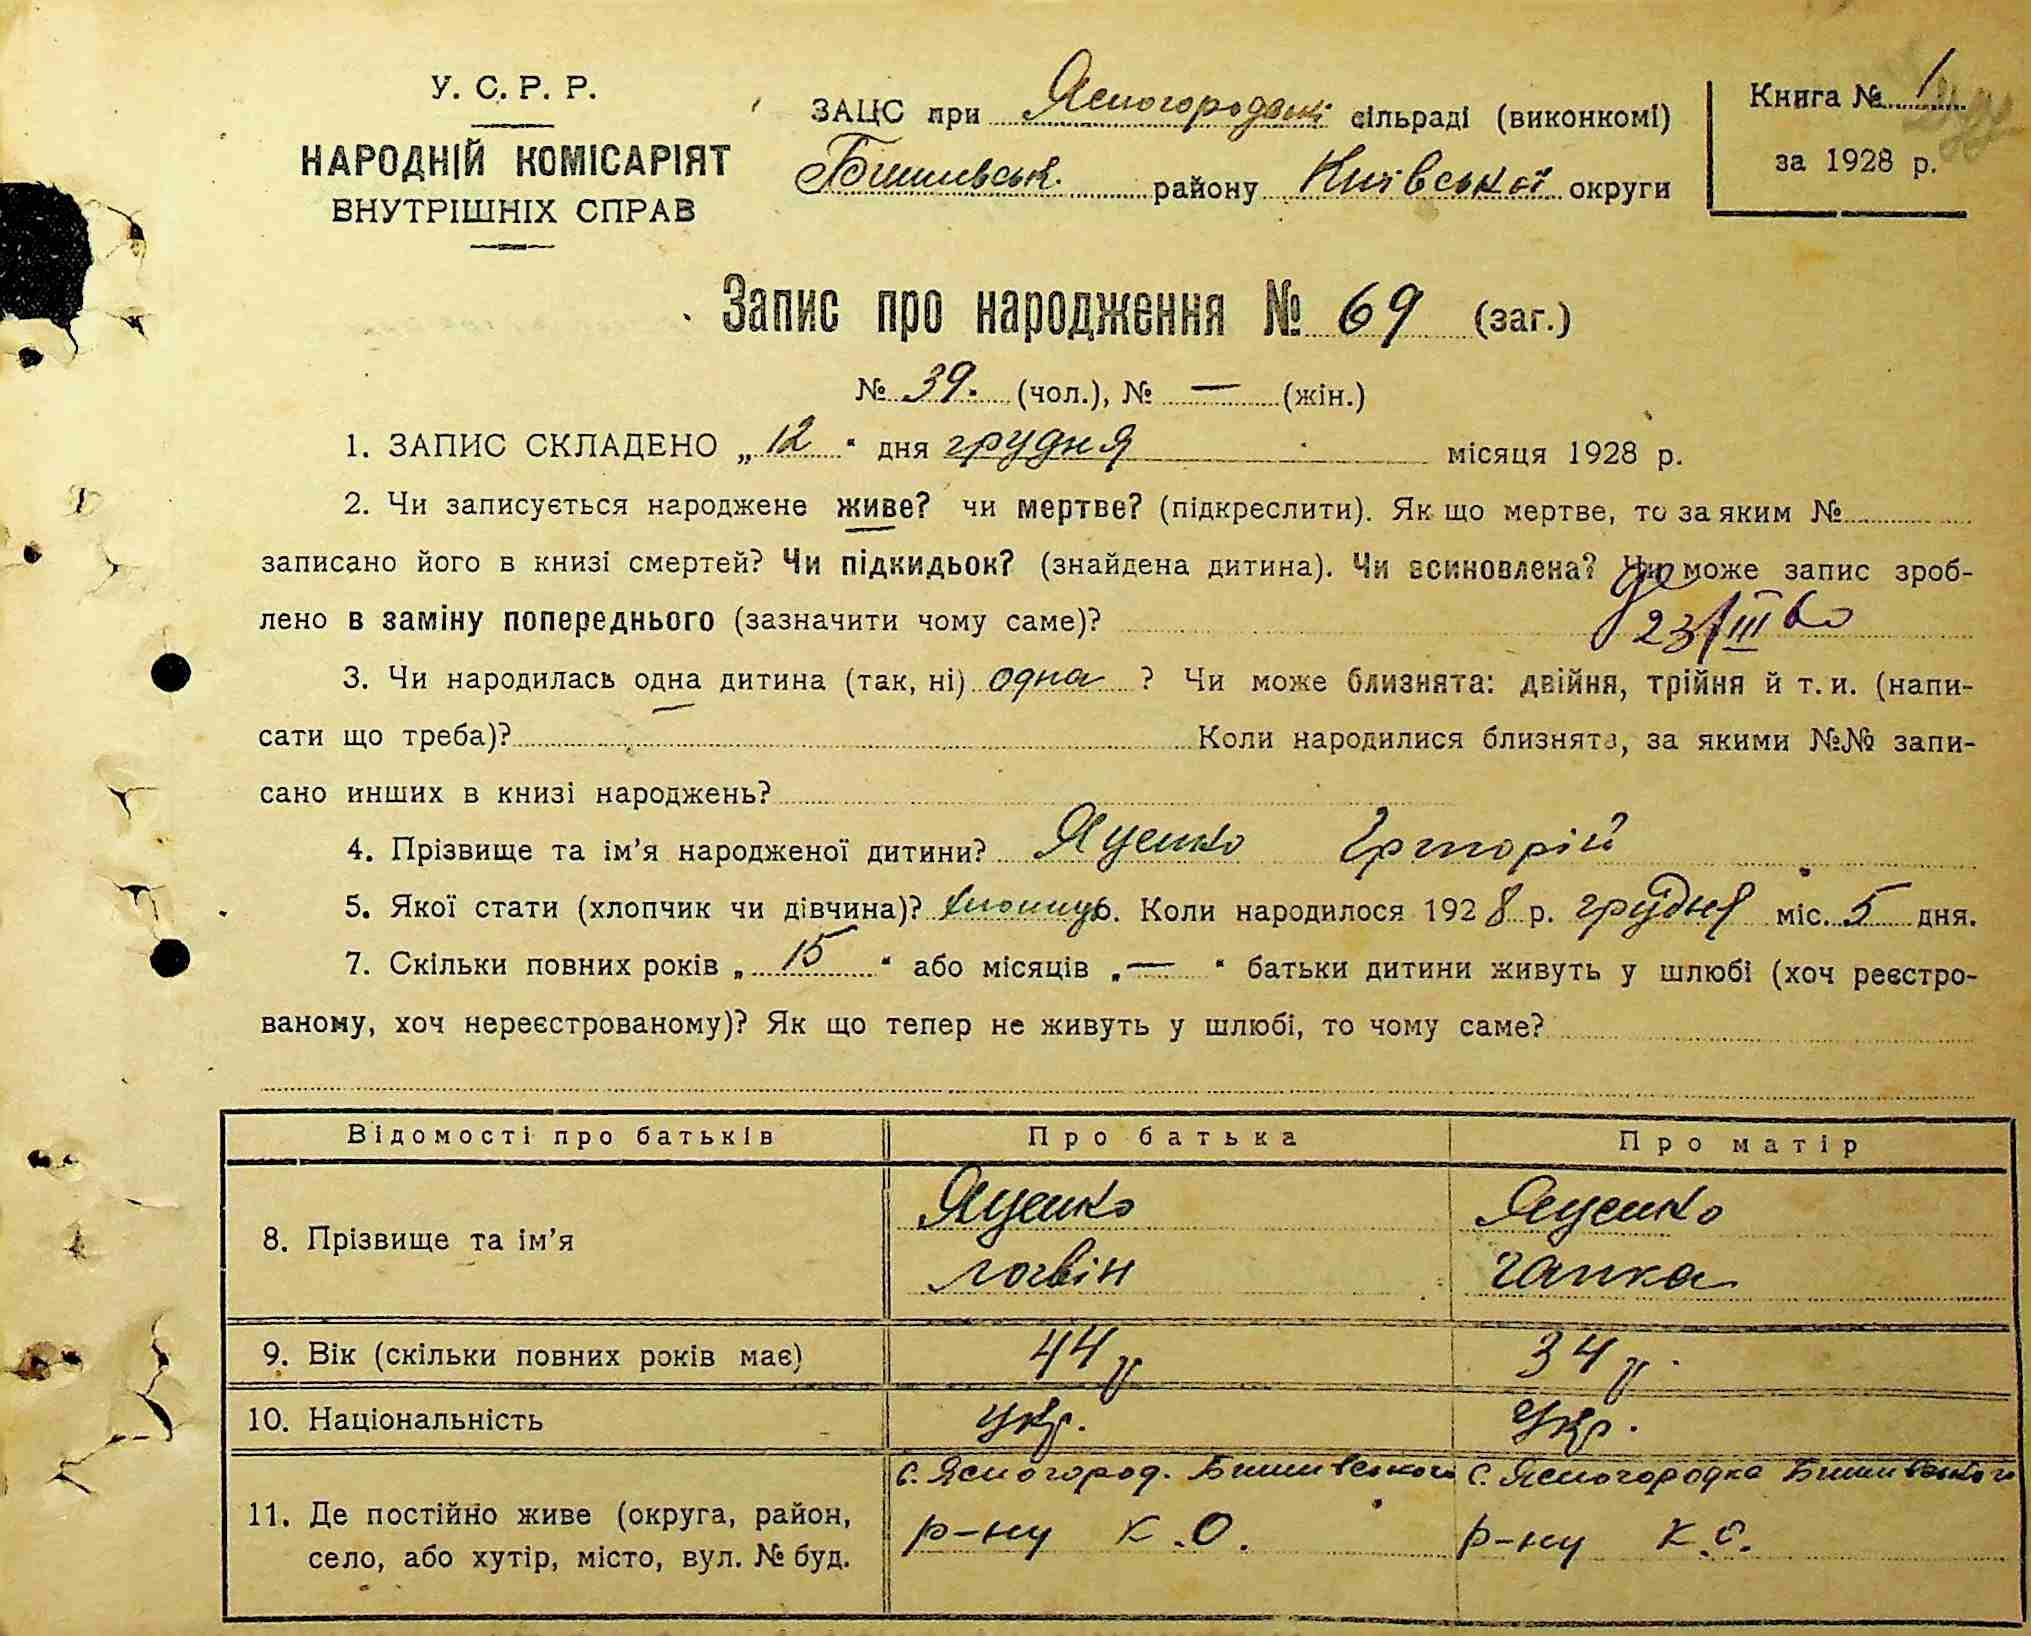 У. С. Р. Р.
НАРОДНІЙ КОМІСАРІЯТ
ВНУТРІШНІХ СПРАВ
ЗАЦС при Ясногородській сільраді (виконкомі)
Бишівськ. району Київської округи
Книга № 1
за 1928 р.
Запис про народження № 69 (заг.)
№ 39. (чол.), № — (жін.)
1. ЗАПИС СКЛАДЕНО „12“ дня грудня місяця 1928 р.
2. Чи записується народжене живе? чи мертве? (підкреслити). Як що мертве, то за яким №
записано його в книзі смертей? Чи підкидьок? (знайдена дитина). Чи всиновлена? Чи може запис зроб-
лено в заміну попереднього (зазначити чому саме)? 23/III
3. Чи народилась одна дитина (так, ні) одна ? Чи може близнята: двійня, трійня й т. и. (напи-
сати що треба)? Коли народилися близнята, за якими №№ запи-
сано инших в книзі народжень?
4. Прізвище та ім'я народженої дитини? Яценко Григорій
5. Якої стати (хлопчик чи дівчина)? 6. Коли народилося 1928 р. грудня міс. 5 дня.
7. Скільки повних років „15“ або місяців „—“ батьки дитини живуть у шлюбі (хоч реєстро-
ваному, хоч нереєстрованому)? Як що тепер не живуть у шлюбі, то чому саме?
Відомості про батьків Про батька Про матір
8. Прізвище та ім'я Яценко Логвін Яценко Гапка
9. Вік (скільки повних років має) 44 р 34 р.
10. Національність укр. Укр.
11. Де постійно живе (округа, район,
село, або хутір, місто, вул. № буд.
с. Ясногород. Бишівського
р-ну К.О.
с. Ясногородка Бишівського
р-ну К.О.